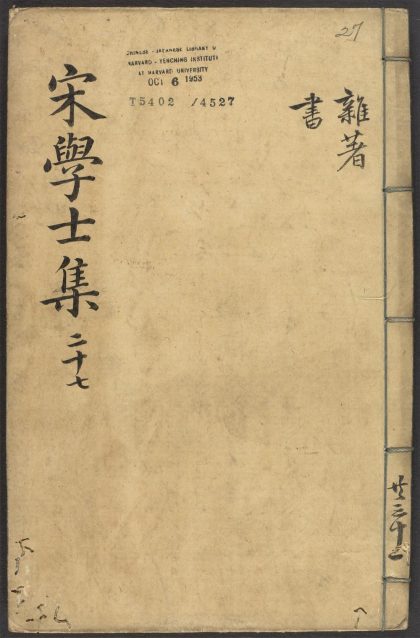 27
CHINESE - JAPANESE LIBRARY O
HARVARD - YENCHING INSTITUTE
AT HARVARD UNIVERSITY
OCT 6 1953
T5402 /4527
雜著
書
宋學士集 二十七
共三十一